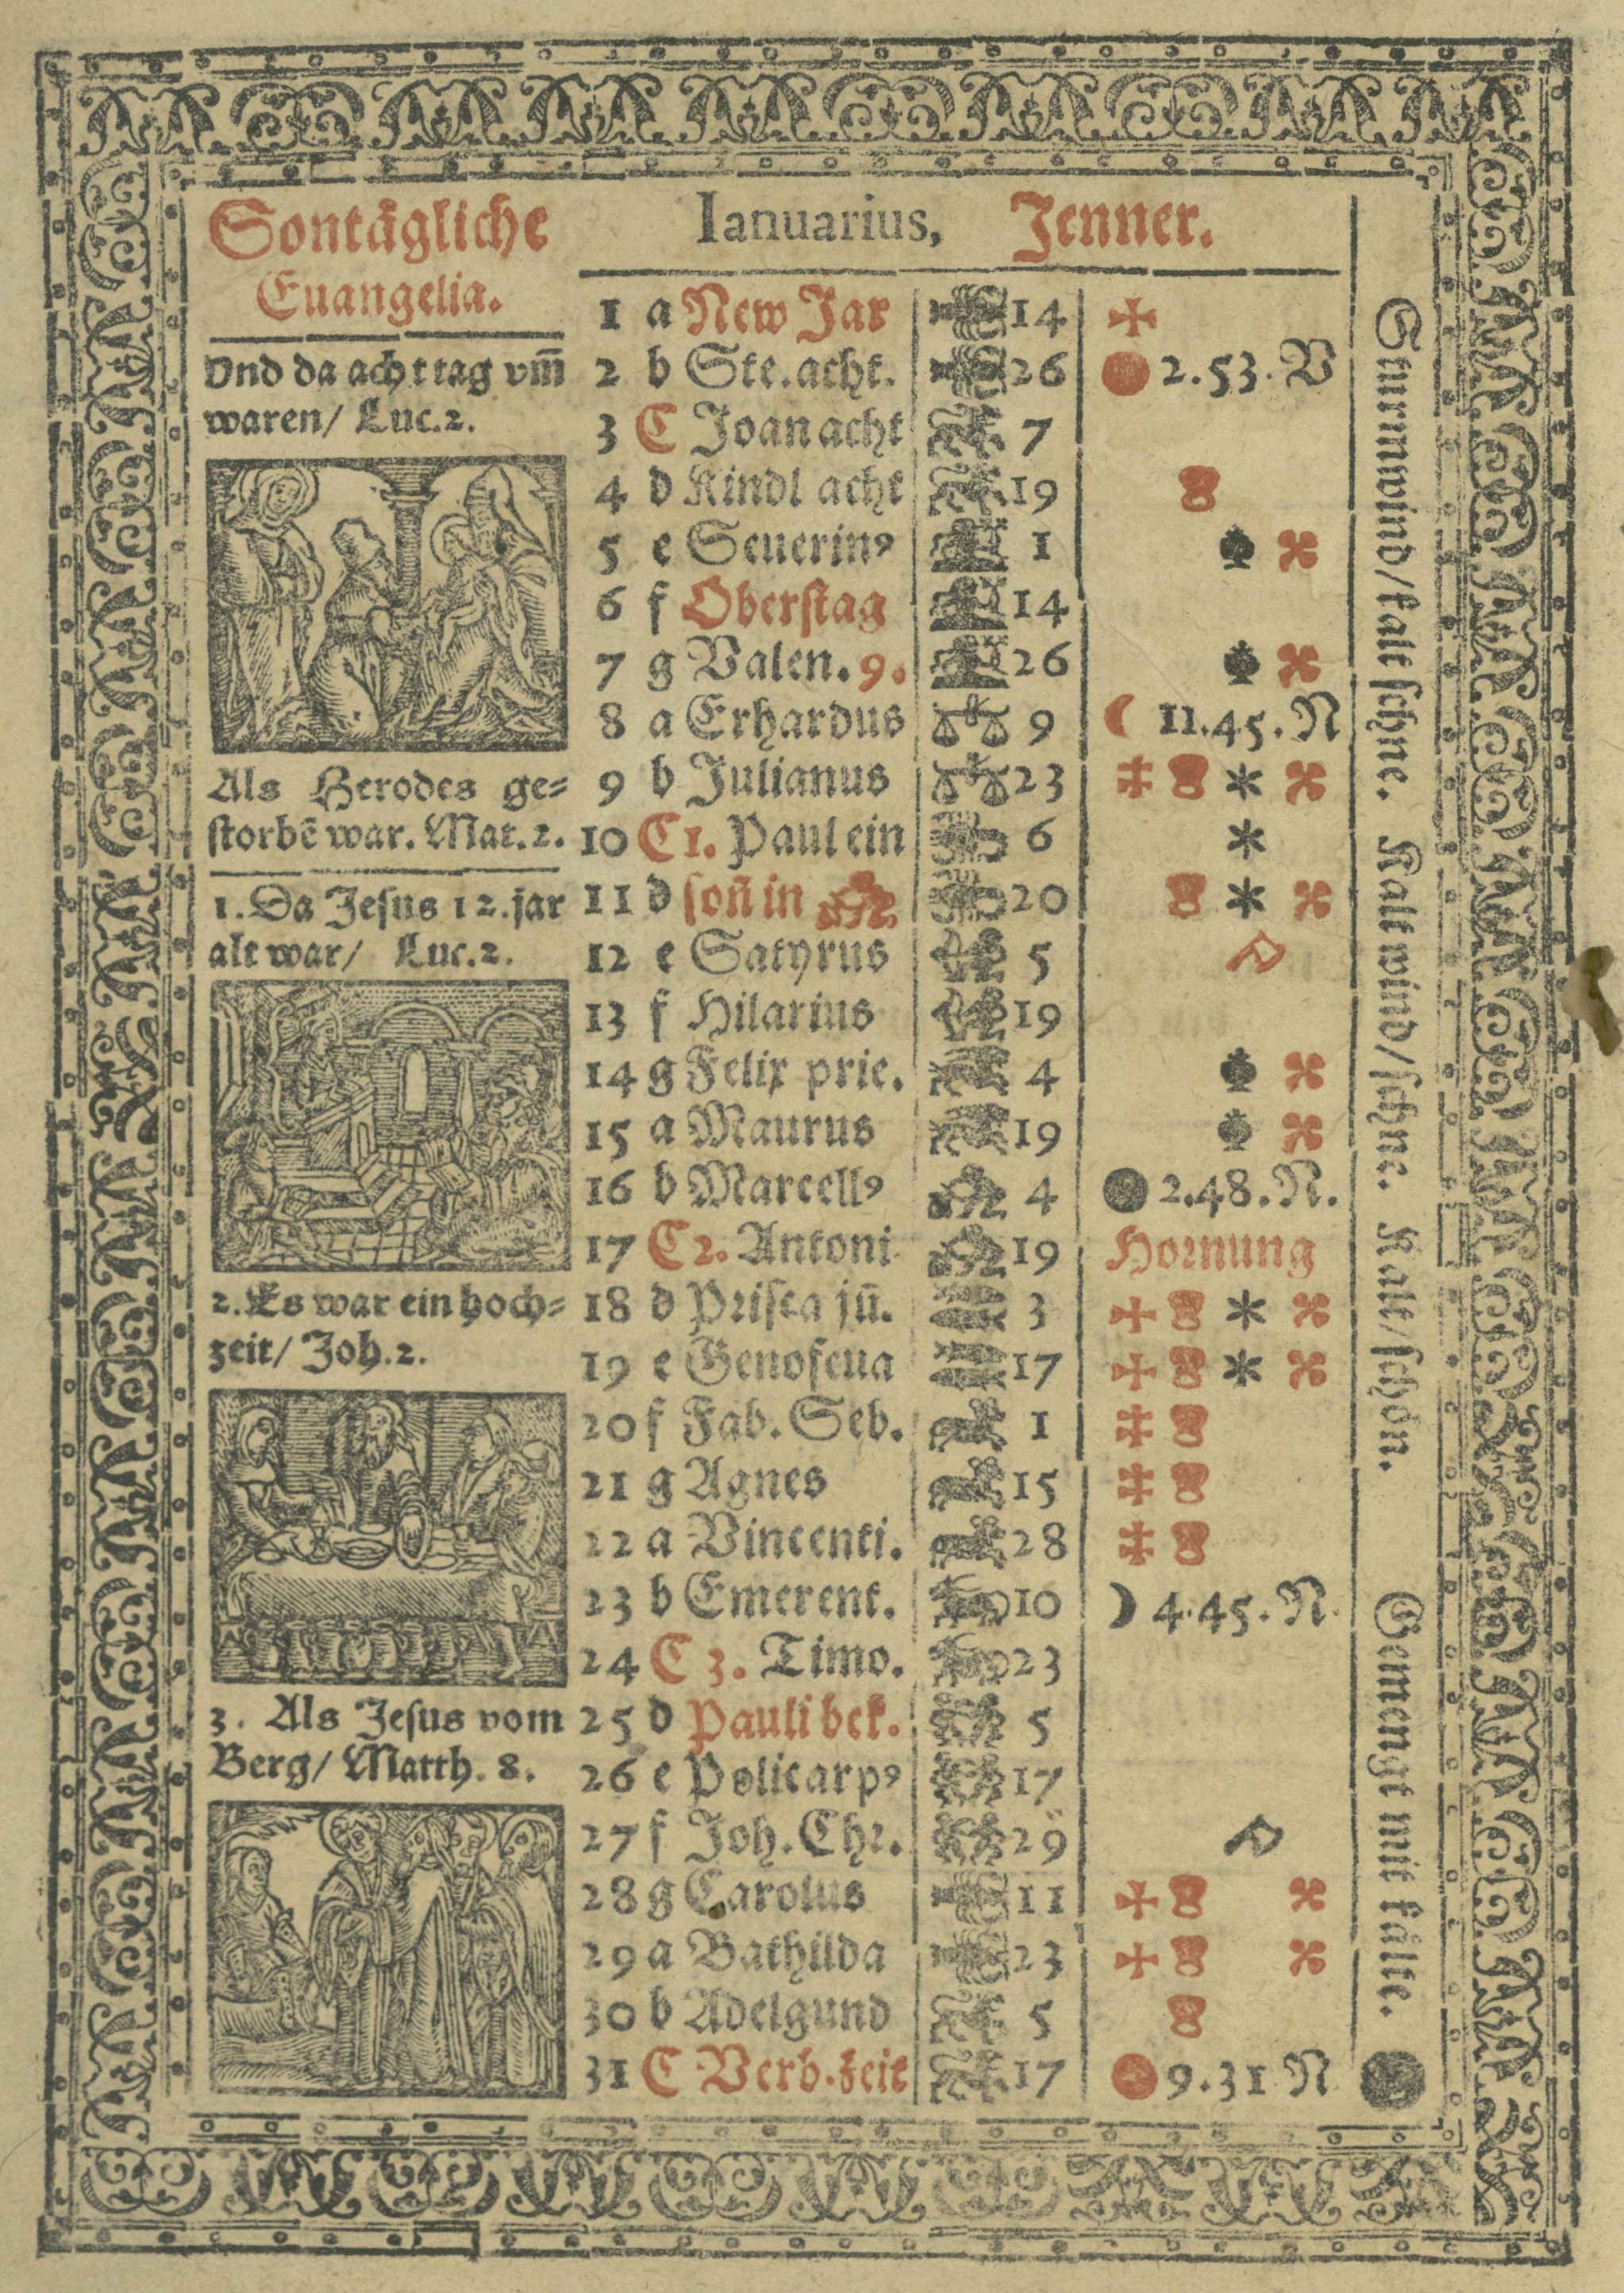 Sontägliche
Euangelia.
Vnd da acht tag vm̄
waren/ Luc.2.
Als Herodes ge⸗
ſtorbē war. Mat.2.
1. Da Jeſus 12. jar
alt war/ Luc.2.
2. Es war ein hoch⸗
zeit/ Joh.2.
3. Als Jeſus vom
Berg/ Matth. 8.
Ianuarius, Jenner.
1 a New Jar 14
2 b Ste. acht. 26 2.53. V
3 C Joan acht 7
4 d Kindl acht 19
5 e Seuerinꝰ 1
6 f Oberſtag 14
7 g Valen. 9. 26
8 a Erhardus 9 11.45. N
9 b Julianus 23
10 C 1. Paul ein 6
11 d ſoñ in 20
12 e Satyrus 5
13 f Hilarius 19
14 g Felix prie. 4
15 a Maurus 19
16 b Marcellꝰ 4 2.48. N.
17 C 2. Antoni 19 Hornung
18 d Priſca jū. 3
19 e Genofeua 17
20 f Fab. Seb. 1
21 g Agnes 15
22 a Vincenti. 28
23 b Emerent. 10 4.45. N.
24 C 3. Timo. 23
25 d Pauli bek. 5
26 e Policarpꝰ 17
27 f Joh. Chr. 29
28 g Carolus 11
29 a Bathilda 23
30 b Adelgund 5
31 C Verb. zeit 17 9.31 N
Sturmwind/ kalt ſchne. Kalt wind/ ſchne. Kalt/ ſchön. Gemengt mit kälte.